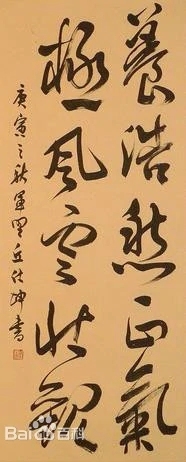 養浩然正氣
極風雲壯觀
庚寅之秋運星丘仕坤書
Bai百科